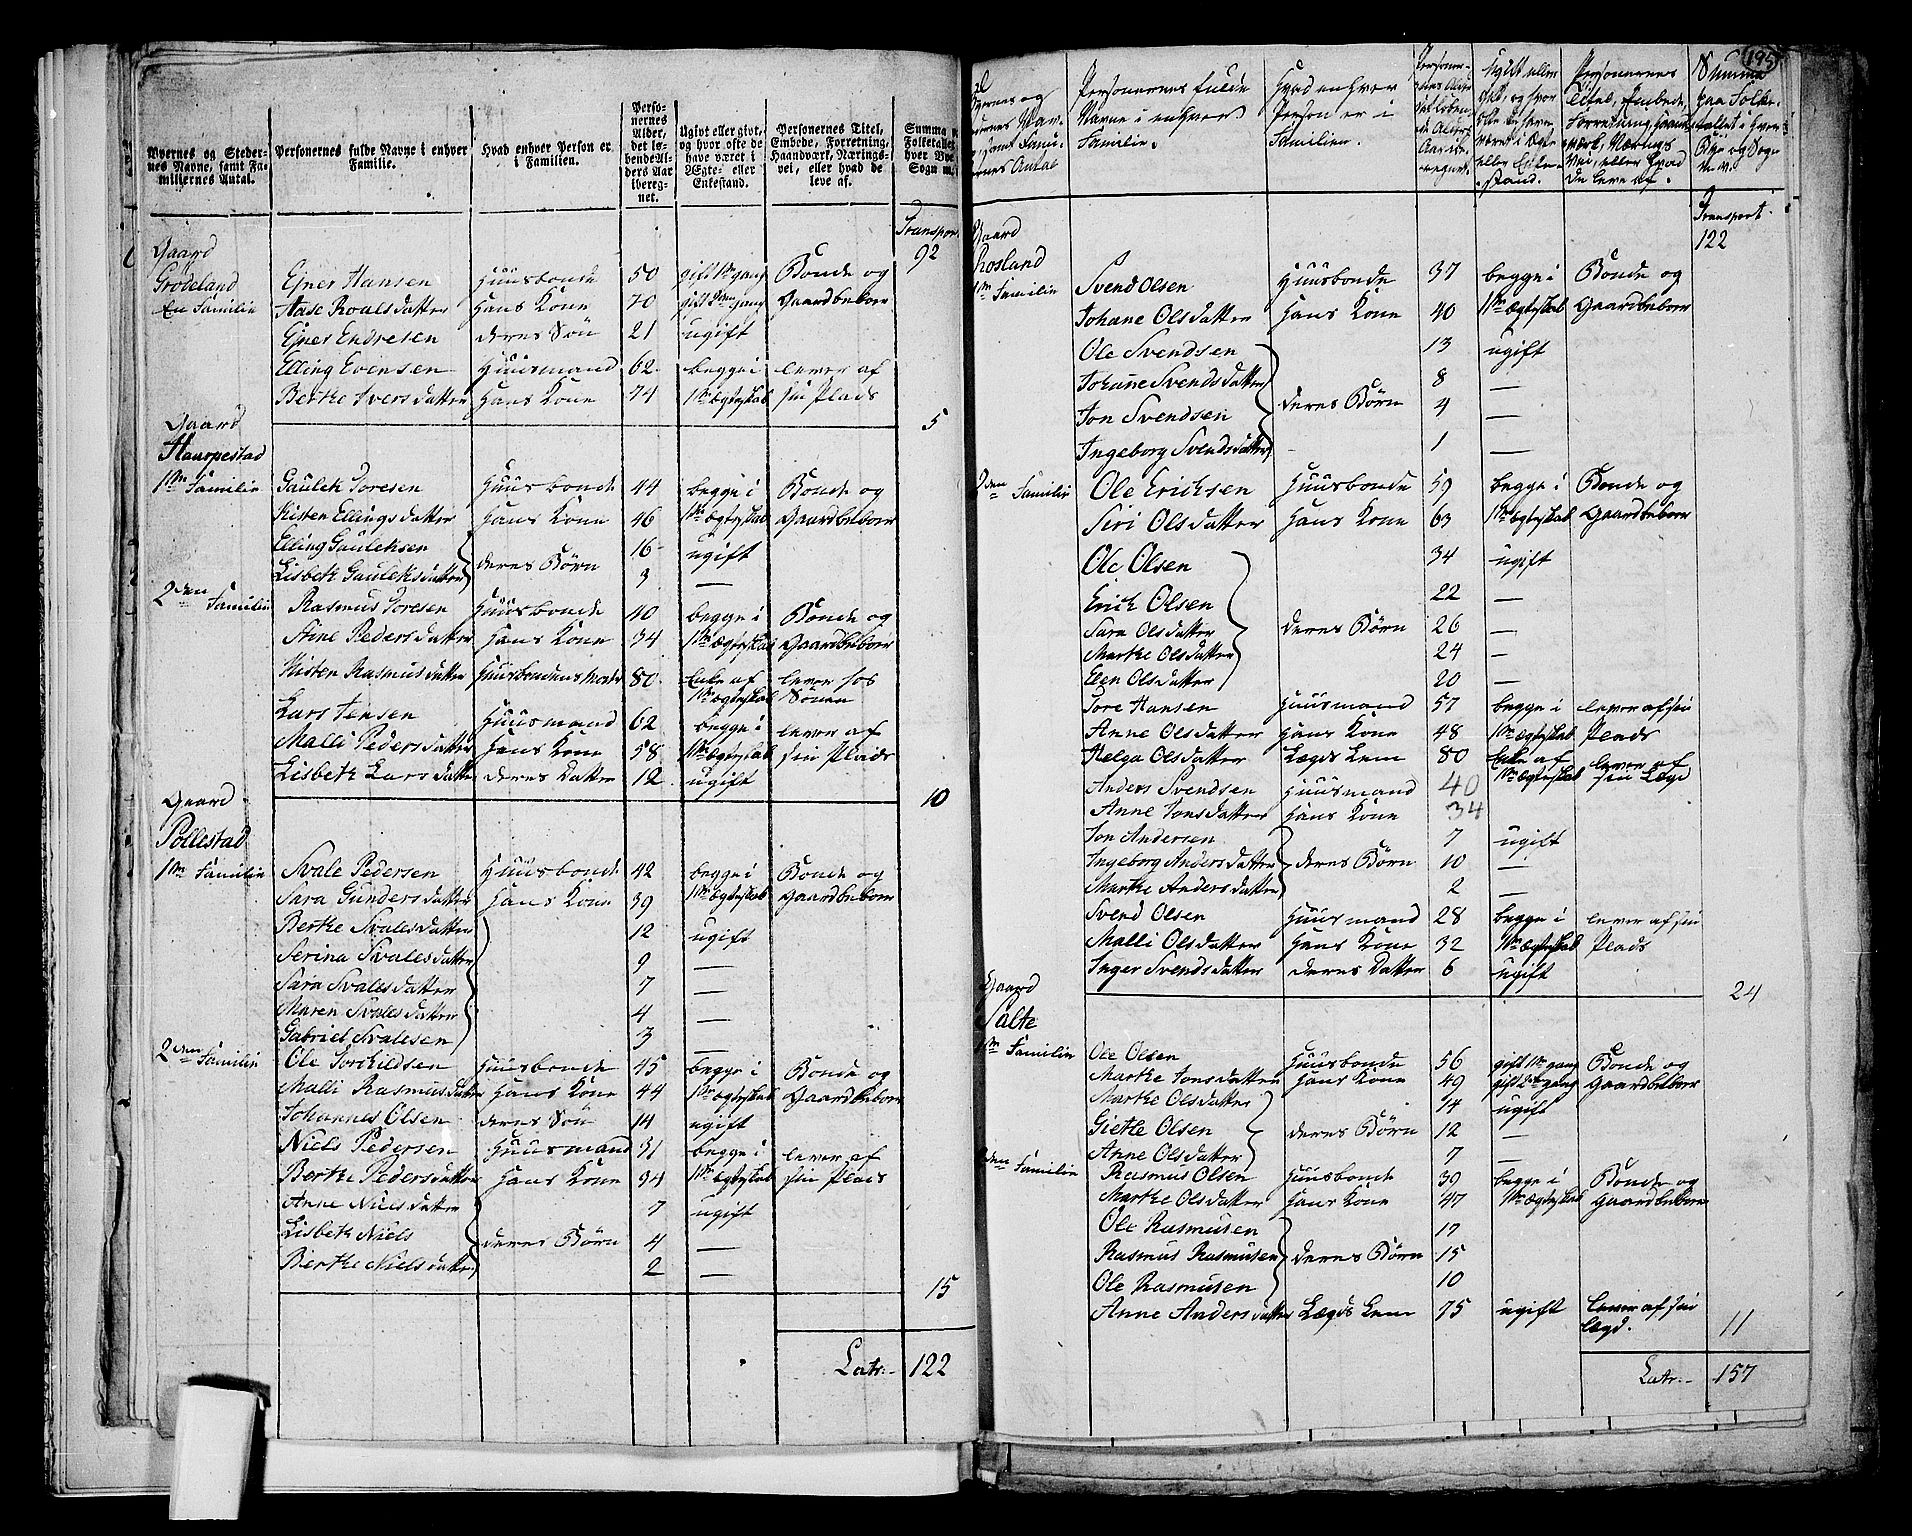 Byernes og Steder-
nes Navne, samt Fa-
miliernes Antal.
Personernes fulde Navne i enhver
Familie.
Hvad enhver Person er
i Familien.
Perso-
nernes
Alder,
det lø-
bende Al-
ders Aar
iberegnet
net.
Ugivt eller givt,
og hvor ofte de
have været i
Ægte- eller
Enkestand.
Personernes Titel,
Embede, Forretning,
Haandværk, Nærings-
vei, eller hvad de
leve af.
Summa
Folketallet
hver Bye
Sogn m.
Transpor
92
Gaard
Grødeland
Ejner Hansen Huusbonde 50 gift 1te gang Bonde og
En Familie Aase Roalsdatter Hans Kone 70 gift 2den gang Gaardbeboer
Ejner Endresen deres Søn 21 ugift
Elling Evensen Huusmand 62 begge i lever af
Berthe Iversdatter Hans Kone 74 1te Ægteskab sin Plads
5
Gaard
Haarpestad
1te Familie Gaulek Toresen Huusbonde 44 begge i Bonde og
Kisten Ellingsdatter Hans Kone 46 1te Ægteskab Gaardbeboer
Elling Gauleksen 16 ugift
Lisbeth Gauleksdatter deres Børn 3 —
2den Familie Rasmus Toresen Huusbonde 40 begge i Bonde og
Stine Pedersdatter Hans Kone 34 1te Ægteskab Gaardbeboer
Kisten Rasmusdatter Huusbondens Moder 80 Enke af lever hos
1te Ægteskab Sønen
Lars Jensen Huusmand 62 begge i lever af
Malli Pedersdatter Hans Kone 58 1te Ægteskab sin Plads
Lisbeth Larsdatter deres Datter 12 ugift
10
Gaard
Pollestad
1te Familie Svale Pedersen Huusbonde 42 begge i Bonde og
Sara Gundersdatter Hans Kone 39 1te Ægteskab Gaardbeboer
Berthe Svalesdatter 12 ugift
Serina Svalesdatter 9 —
Sara Svalesdatter 7 —
Maren Svalesdatter 4 —
Gabriel Svalesen 3 —
2den Familie Ole Torkildsen Huusbonde 45 begge i Bonde og
Malli Rasmusdatter Hans Kone 44 1te Ægteskab Gaardbeboer
Johannes Olsen deres Søn 14 ugift
Niels Pedersen Huusmand 31 begge i lever af
Berthe Pedersdatter Hans Kone 34 1te Ægteskab sin Plads
Anne Nielsdatter 7 ugift
Lisbeth Niels deres Børn 4 —
Berthe Nielsdatter 2 —
15
Latr:- 122
195
Personernes fulde
Navne i enhver
Familie.
Hvad enhver
Person er i
Familien.
Summa
paa Folke-
tallet i hver
Bye og Sogn
m.v.
Transport
122
Gaard
1te Familie Svend Olsen Huusbonde 37 begge i Bonde og
Johane Olsdatter Hans Kone 40 1te Ægteskab Gaardbeboer
Ole Svendsen 13 ugift
Johane Svendsdatter 8 —
Jon Svendsen deres Børn 4 —
Ingeborg Svendsdatter 1 —
2den Familie Ole Ericksen Huusbonde 59 begge i Bonde og
Siri Olsdatter Hans Kone 63 1te Ægteskab Gaardbeboer
Ole Olsen 34 ugift
Erick Olsen 22 —
Sara Olsdatter deres Børn 26 —
Marthe Olsdatter 24 —
Elen Olsdatter 20 —
Tore Hansen Huusmand 57 begge i lever af sin
Anne Olsdatter Hans Kone 48 1te Ægteskab Plads
Helga Olsdatter Lægds Lem 80 Enke af lever af
1te Ægteskab sin Lægd
Anders Svendsen Huusmand 40
Anne Jonsdatter Hans Kone 34
Jon Andersen 7 ugift
Ingeborg Andersdatter deres Børn 10 —
Marthe Andersdatter 2 —
Svend Olsen Huusmand 28 begge i lever af sin
Malli Olsdatter Hans Kone 32 1te Ægteskab Plads
Inger Svendsdatter deres Datter 6 ugift
24
Gaard
Salte
1te Familie Ole Olsen Huusbonde 56 gift 1te gang Bonde og
Marthe Jonsdatter Hans Kone 49 gift 2den gang Gaardbeboer
Marthe Olsdatter 14 ugift
Giethe Olsen deres Børn 12 —
Anne Olsdatter 7 —
2den Familie Rasmus Olsen Huusbonde 39 begge i Bonde og
Marthe Olsdatter Hans Kone 47 1te Ægteskab Gaardbeboer
Ole Rasmusen 17
Rasmus Rasmusen deres Børn 15
Ole Rasmusen 10
Anne Andersdatter Lægds Lem 75 ugift lever af sin
Lægd.
11
Latr:- 157